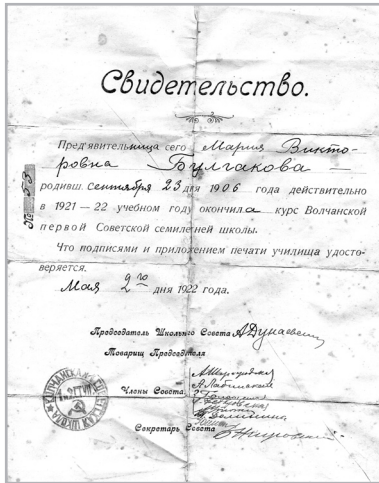 Свидетельство.
Пред'явительница сего Мария Викто-
ровна Булгакова —
родивш. сентября 23 дня 1906 года действительно
в 1921—22 учебном году окончила курс Волчанской
первой Советской семилетней школы.
Что подписями и приложением печати училища удосто-
веряется.
Мая 2го дня 1922 года.
№ 53
Председатель Школьного Совета АДунаевский
Товарищ Председателя
Члены Совета
Секретарь Совета